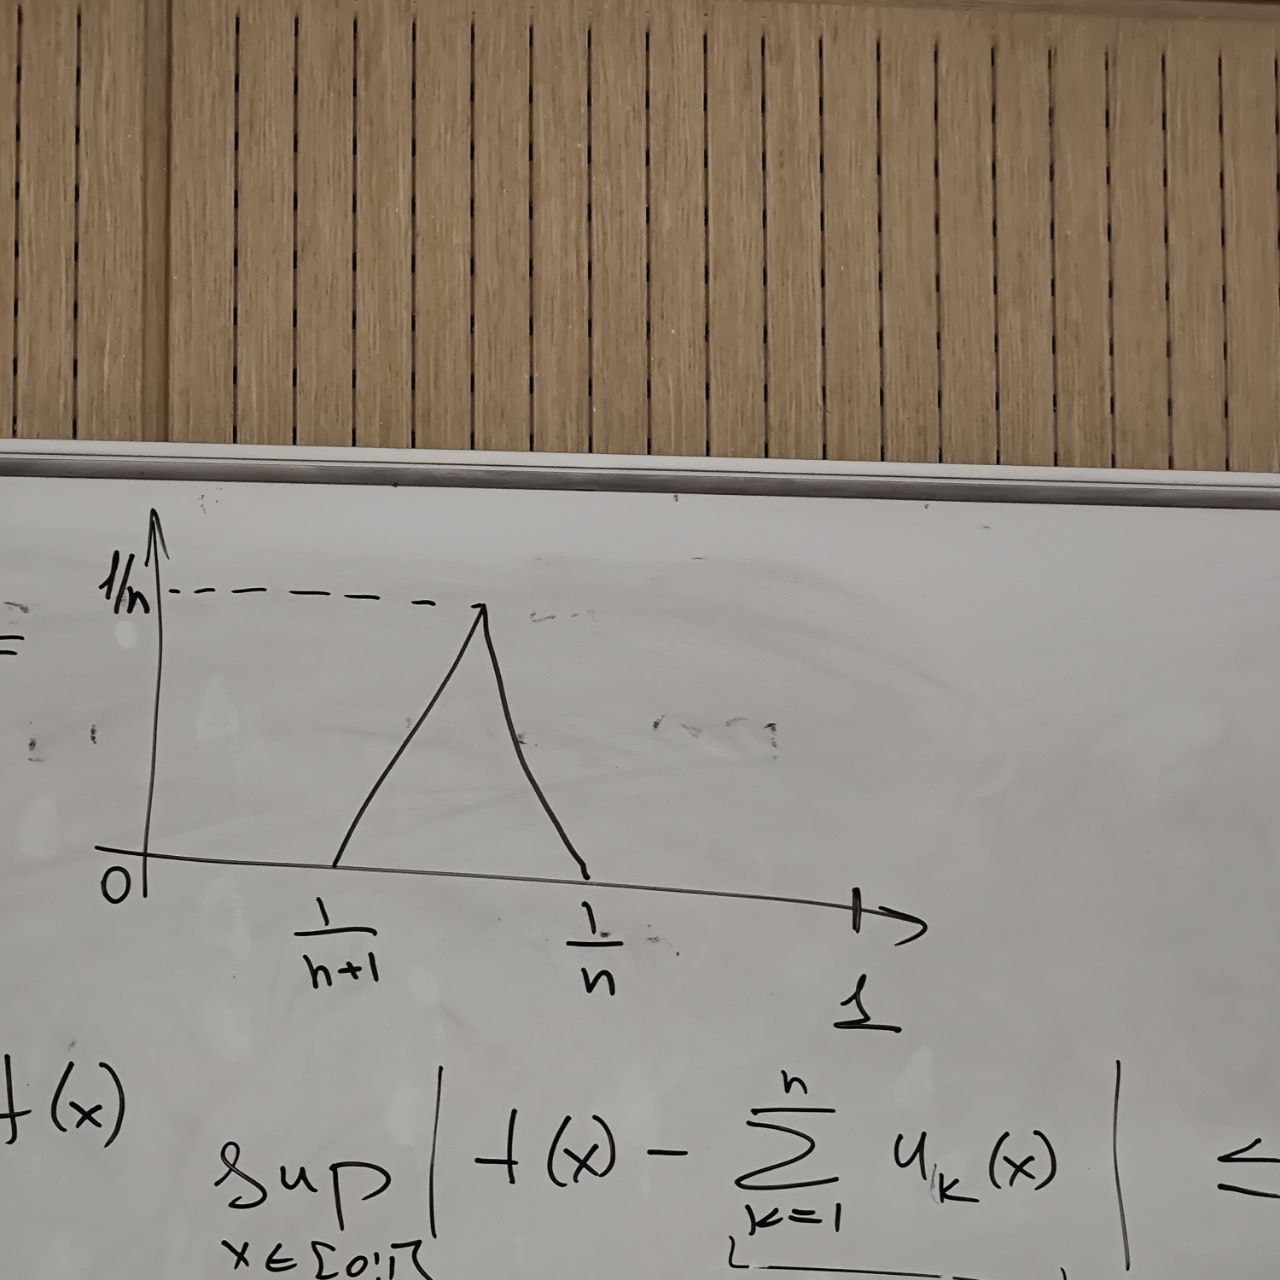 1/n
=
0
1/(n+1) 1/n 1
f(x) sup x∈[0;1] | f(x) − ∑_{k=1}^{n} u_k(x) | ≤